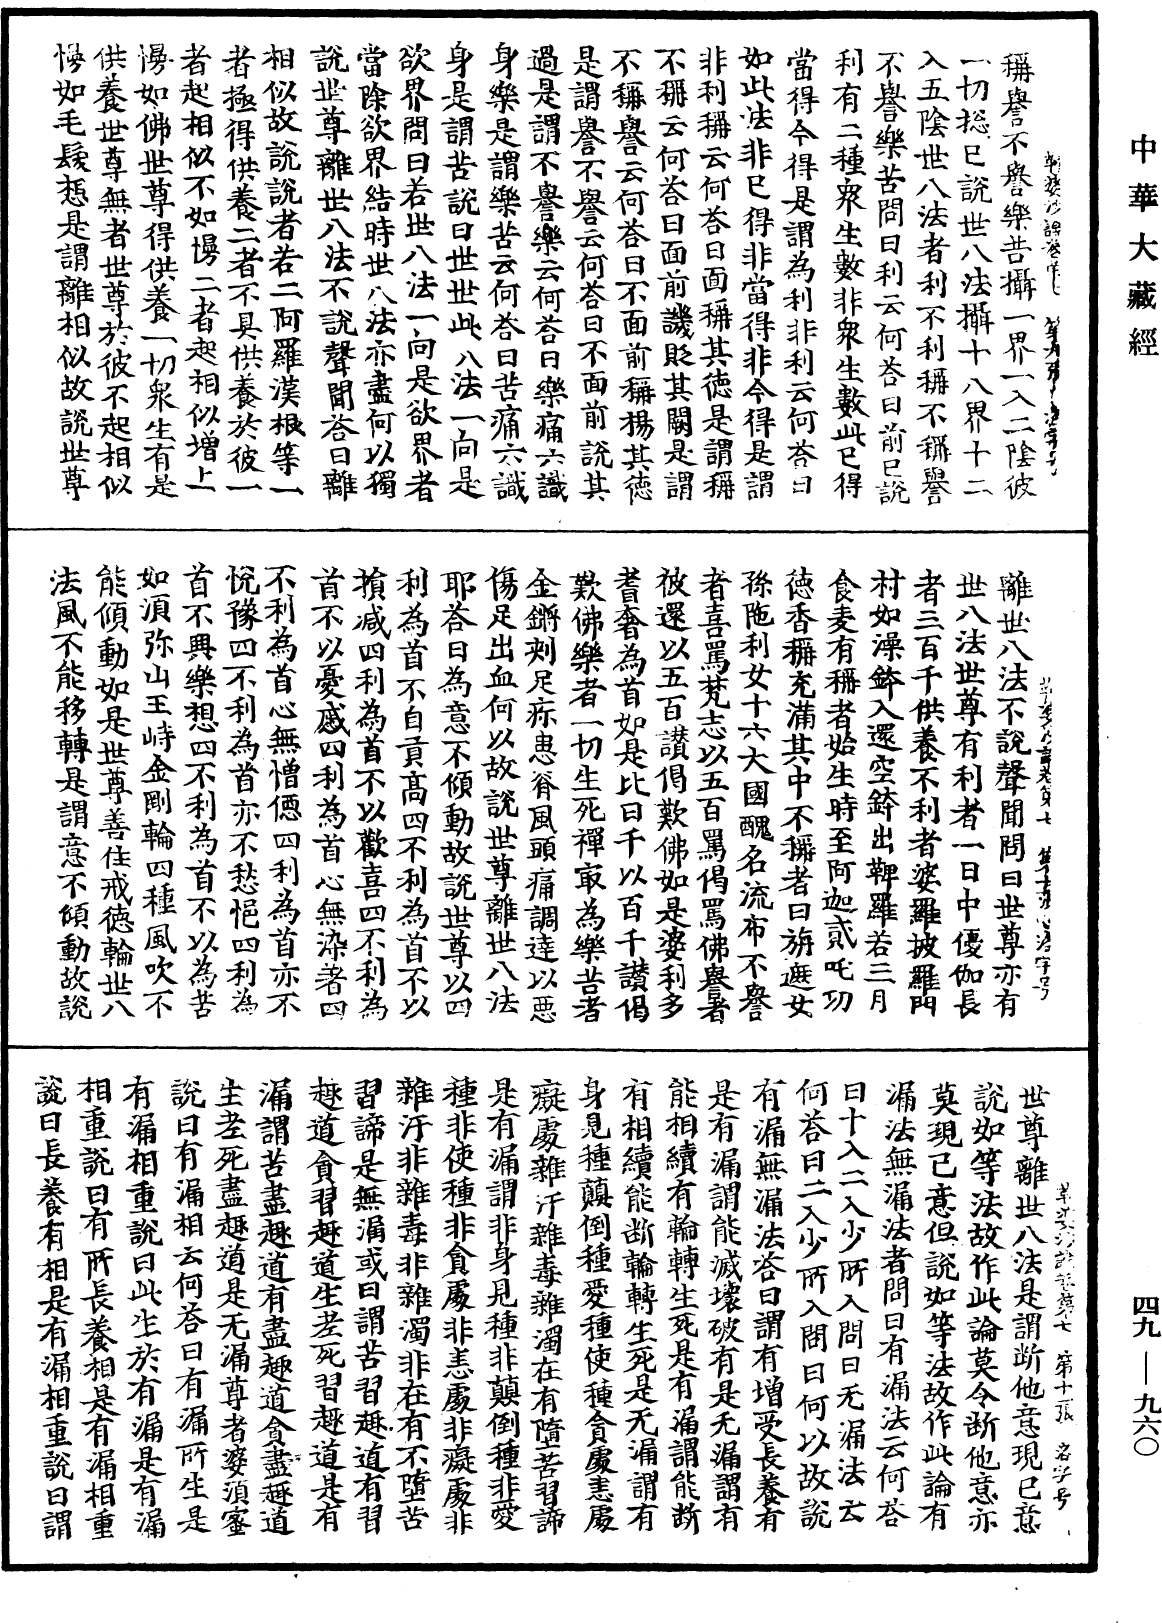 中華大藏經
稱譽不譽樂苦攝一界一入二陰彼
一切捴已說世八法攝十八界十二
入五陰世八法者利不利稱不稱譽
不譽樂苦問曰利云何荅曰前已說
利有二種衆生數非衆生數此已得
當得今得是謂為利非利云何荅曰
如此法非已得非當得非今得是謂
非利稱云何荅曰面稱其德是謂稱
不稱云何荅曰面前譏貶其闕是謂
不稱譽云何荅曰不面前稱揚其德
是謂譽不譽云何荅曰不面前說其
過是謂不譽樂云何荅曰樂痛六識
身樂是謂樂苦云何荅曰苦痛六識
身是謂苦說曰世世此八法一向是
欲界問曰若世八法一向是欲界者
當除欲界結時世八法亦盡何以獨
說世尊離世八法不說聲聞荅曰離
相似故說說者若二阿羅漢根等一
者極得供養二者不具供養於彼一
者起相似不如慢二者起相似增上
慢如佛世尊得供養一切衆生有是
供養世尊無者世尊於彼不起相似
慢如毛髮想是謂離相似故說世尊
離世八法不說聲聞問曰世尊亦有
世八法世尊有利者一日中優伽長
者三百千供養不利者婆羅披羅門
村如澡鉢入還空鉢出鞞羅若三月
食麦有稱者始生時至阿迦貳吒功
德香稱充滿其中不稱者曰旃遮女
孫陁利女十六大國醜名流布不譽
者喜罵梵志以五百罵偈罵佛譽者
彼還以五百讃偈歎佛如是婆利多
耆奢為首如是比曰千以百千讃偈
歎佛樂者一切生死禪㝡為樂苦者
金鏘刾足疢患脊風頭痛調達以惡
傷足出血何以故說世尊離世八法
耶荅曰為意不傾動故說世尊以四
利為首不自貢高四不利為首不以
損減四利為首不以歡喜四不利為
首不以憂慼四利為首心無染著四
不利為首心無憎恧四利為首亦不
悅豫四不利為首亦不愁悒四利為
首不興樂想四不利為首不以為苦
如湏弥山王峙金剛輪四種風吹不
能傾動如是世尊善住戒德輪世八
法風不能移轉是謂意不傾動故說
世尊離世八法是謂斷他意現已意
說如等法故作此論莫令斷他意亦
莫現已意但說如等法故作此論有
漏法無漏法者問曰有漏法云何荅
曰十入二入少所入問曰无漏法云
何荅曰二入少所入問曰何以故說
有漏無漏法荅曰謂有增受長養有
是有漏謂能滅壞破有是无漏謂有
能相續有輪轉生死是有漏謂能斷
有相續能斷輪轉生死是无漏謂有
身見種顛倒種愛種使種貪處恚處
癡處雜汙雜毒雜濁在有墮苦習諦
是有漏謂非身見種非顛倒種非愛
種非使種非貪處非恚處非癡處非
雜汙非雜毒非雜濁非在有不墮苦
習諦是無漏或曰謂苦習趣道有習
趣道貪習趣道生老死習趣道是有
漏謂苦盡趣道有盡趣道貪盡趣道
生老死盡趣道是无漏尊者婆湏蜜
說曰有漏相云何荅曰有漏所生是
有漏相重說曰此生於有漏是有漏
相重說曰有所長養相是有漏相重
說曰長養有相是有漏相重說曰謂
四九—九六〇